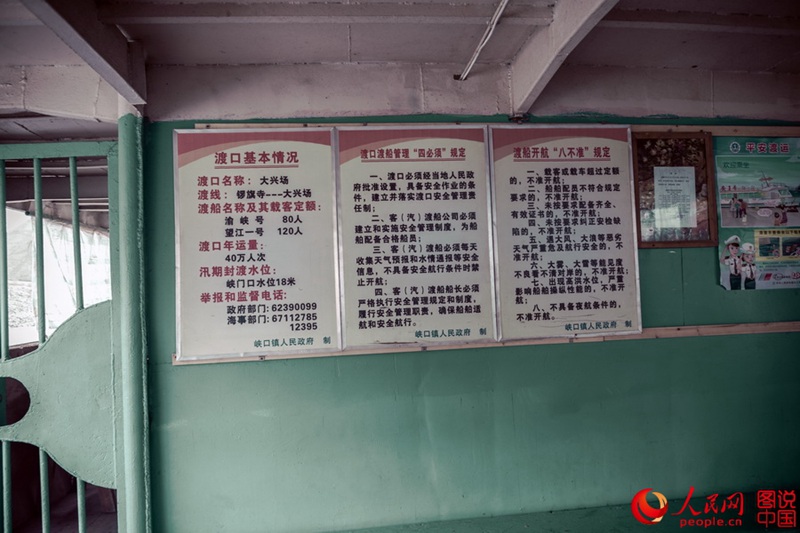 渡口基本情况
渡口名称：大兴场
渡线：锣旗寺---大兴场
渡船名称及其载客定额：
渝峡号 80人
望江一号 120人
渡口年运量：
40万人次
汛期封渡水位：
峡口门口水位18米
举报和监督电话：
政府部门：62390099
海事部门：67112785
12395
峡口镇人民政府 制
渡口渡船管理“四必须”规定
一、渡口必须经当地人民政
府批准设置，具备安全作业的条
件，建立并落实渡口安全管理责
任制；
二、客（汽）渡船公司必须
建立和实施安全管理制度，为船
舶配备合格船员；
三、客（汽）渡船必须每天
收集天气预报和水情通报等安全
信息，不具备安全航行条件时禁
止开航；
四、客（汽）渡船船长必须
严格执行安全管理规定和制度，
履行安全管理职责，确保船舶适
航和安全航行。
峡口镇人民政府 制
渡船开航“八不准”规定
一、载客或载车超过定额
的，不准开航；
二、船舶配员不符合规定
要求的，不准开航；
三、未按要求配备齐全、
有效证书的，不准开航；
四、未按要求纠正安检缺
陷的，不准开航；
五、遇大风、大浪等恶劣
天气严重危及航行安全的，不
准开航；
六、大雾、大雪等能见度
不良看不清对岸的，不准开航；
七、出现高洪水位，严重
影响船舶操纵性能的，不准开
航；
八、不具备夜航条件的，
不准开航。
峡口镇人民政府 制
平安渡运
人民网
people.cn
图说
中国